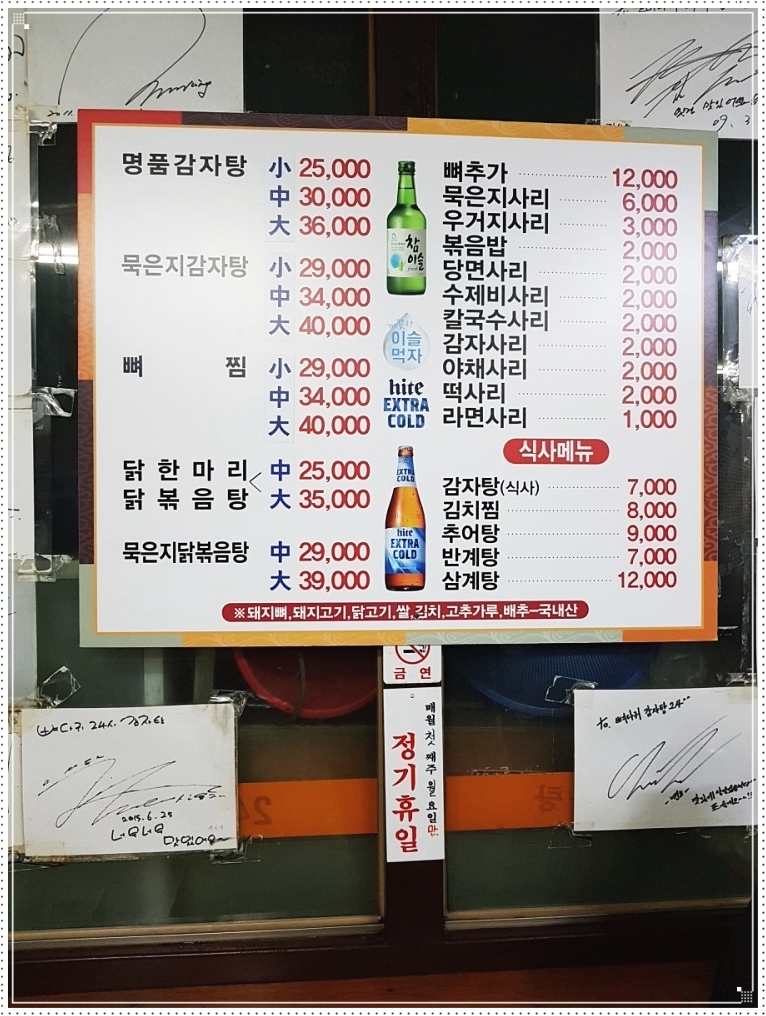 2011.
09. 3
명품감자탕 小 25,000
中 30,000
大 36,000
묵은지감자탕 小 29,000
中 34,000
大 40,000
뼈 찜 小 29,000
中 34,000
大 40,000
닭한마리 中 25,000
닭볶음탕 大 35,000
묵은지닭볶음탕 中 29,000
大 39,000
참
이슬
fresh
이슬
먹자
hite
EXTRA
COLD
EXTRA
COLD
hite
EXTRA
COLD
뼈추가 12,000
묵은지사리 6,000
우거지사리 3,000
볶음밥 2,000
당면사리 2,000
수제비사리 2,000
칼국수사리 2,000
감자사리 2,000
야채사리 2,000
떡사리 2,000
라면사리 1,000
식사메뉴
감자탕(식사) 7,000
김치찜 8,000
추어탕 9,000
반계탕 7,000
삼계탕 12,000
※돼지뼈,돼지고기,닭고기,쌀,김치,고추가루,배추-국내산
금 연
매월 첫째주 월요일만
정기휴일
뼈다귀 24시 감자탕
2015.6.25
너무너무
맛있어요
to. 뼈다귀 감자탕 24
24
탕